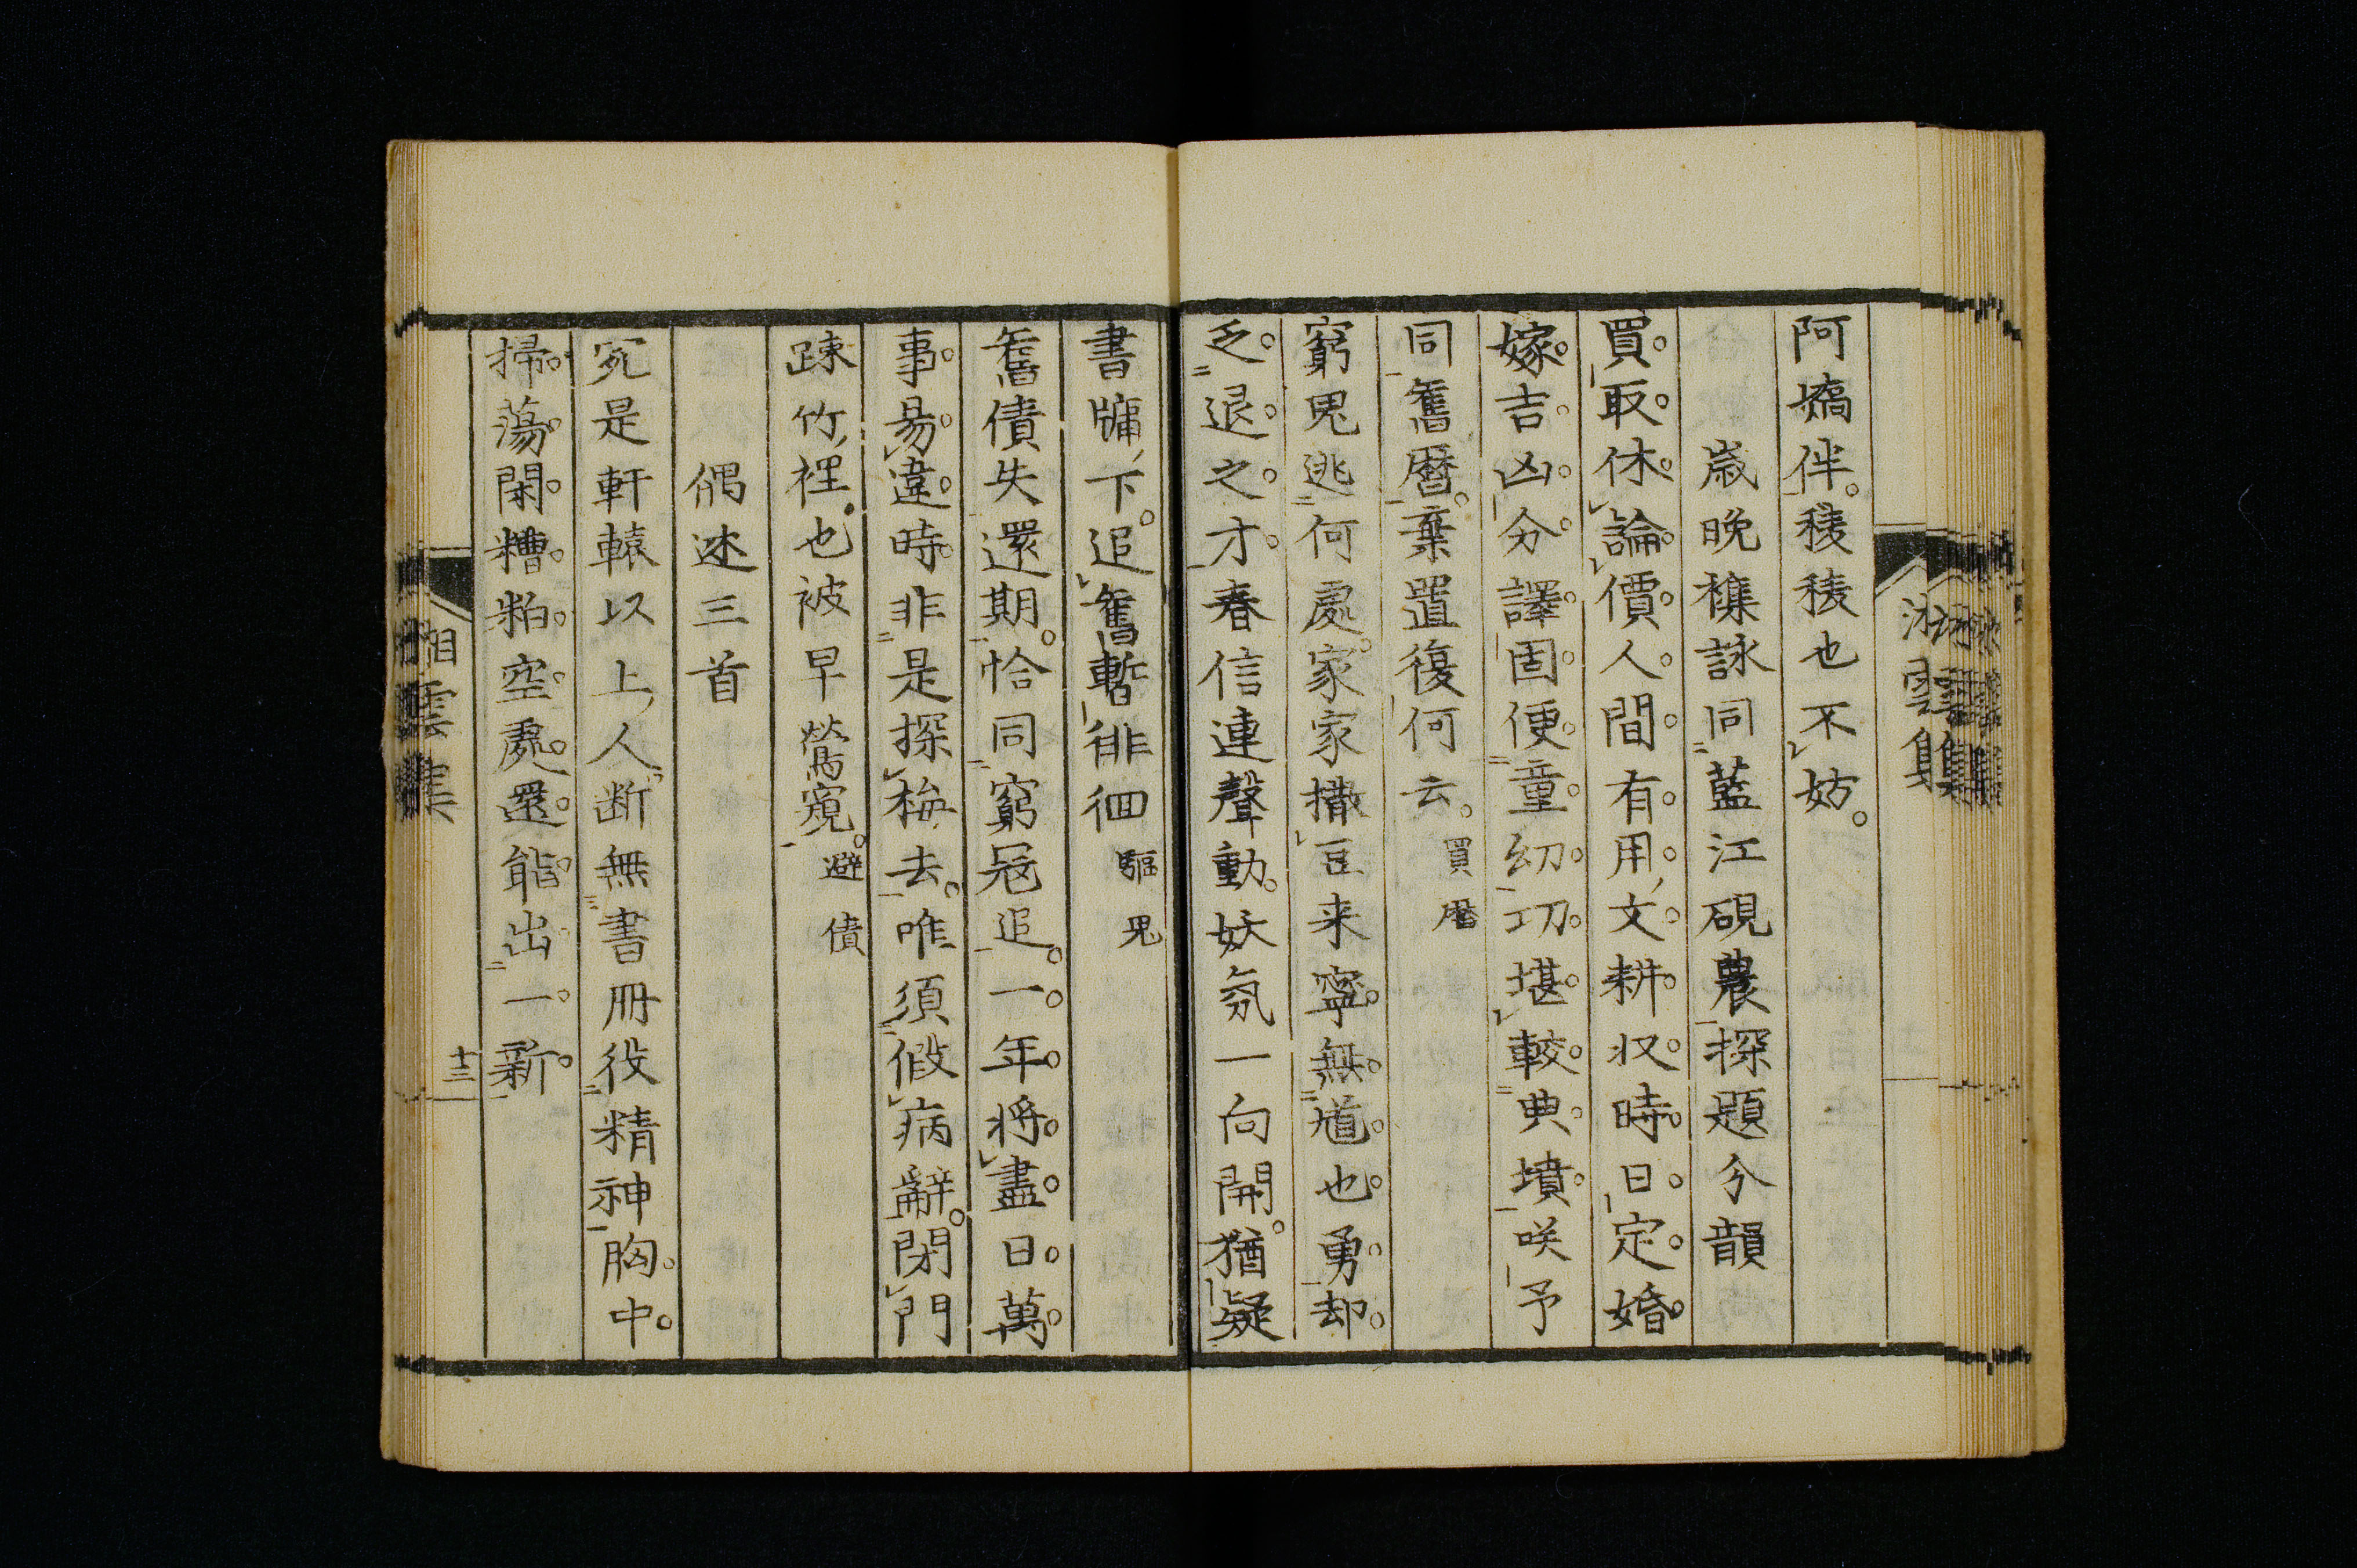 阿嬌伴。稜稜也不妨。
歳晩襍詠同藍江硯農探題分韻
買取休論價人間有用文耕收時日定婚
嫁吉凶分譯固便童幼功堪較典墳咲予
同舊暦。棄置復何云。買暦
窮鬼逃何處。家家撒豆来寧無道也勇却
乏退之才春信連聲動。妖氛一向開。猶疑
書牗下。追舊暫徘徊 驅鬼
舊債失還期。恰同窮冦追。一年将盡日萬
事易違時非是探梅去。唯須假病辭。閉門
疎竹裡也被早鶯窺。避債
偶述三首
冥是軒轅以上人断無書冊役精神胸中。
掃蕩閑糟粕空處還能出一新
湘雲集
十三